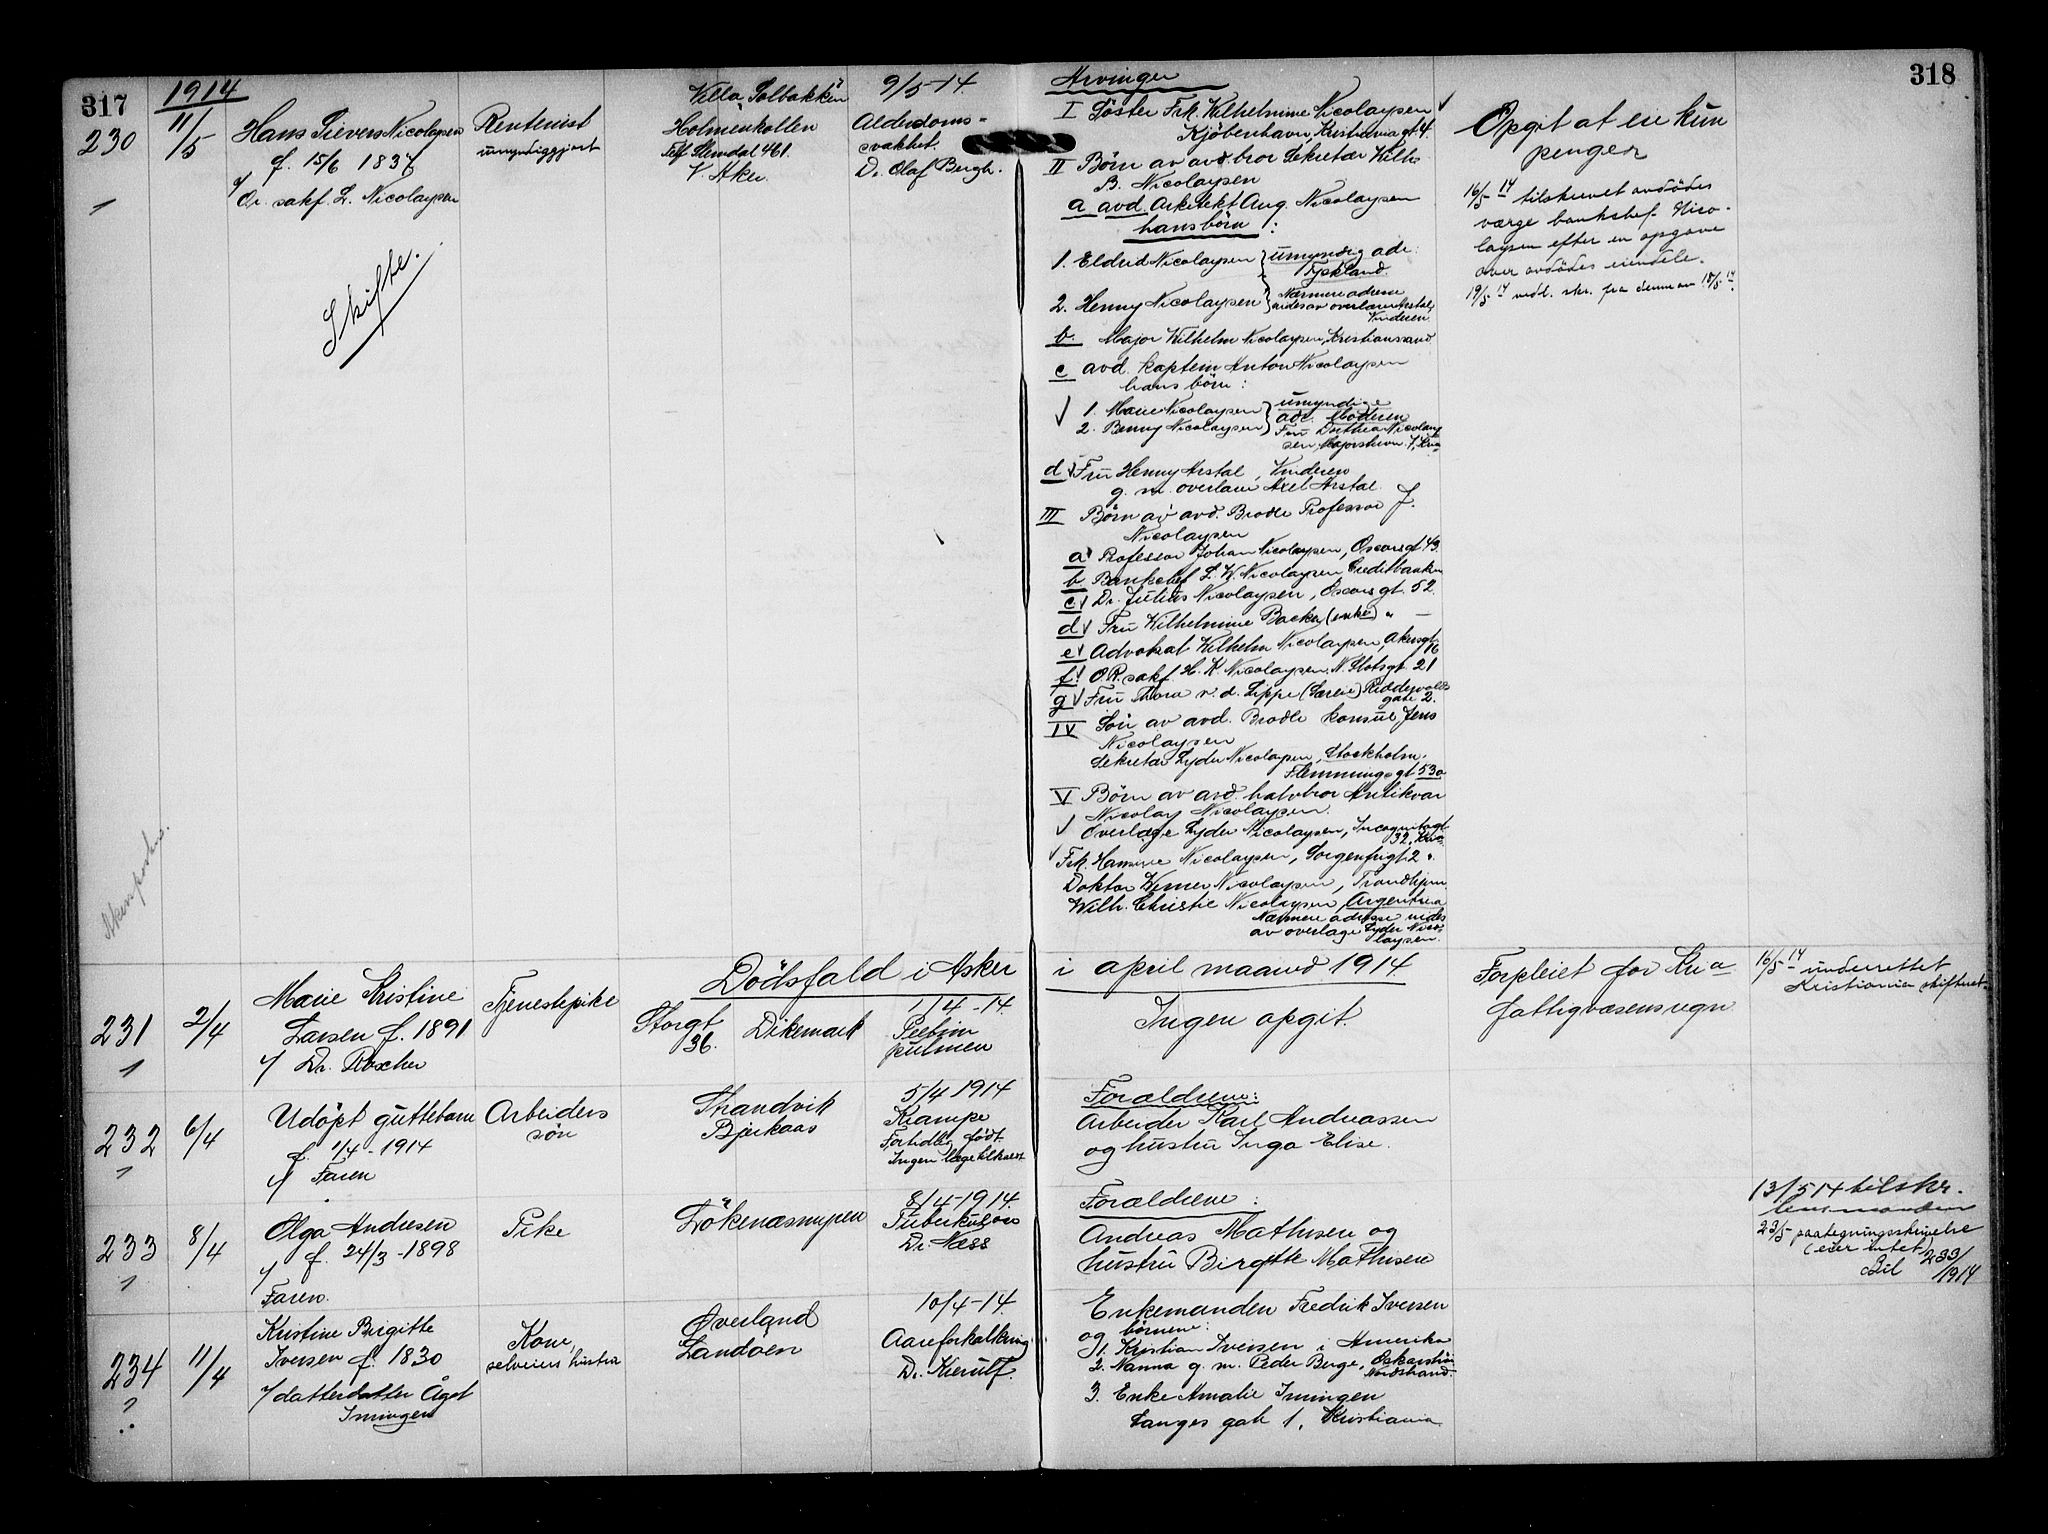 317
1914
230
11/5
Hans Sievers Nicolaysen
f. 15/6 1837
v/
Or. sakf. L. Nicolaysen
1
Skifte.
Rentenist
umyndiggjort
Villa Solbakken
Holmenkollen
Telf Slemdal 461.
V. Aker.
9/5-14
Alderdoms-
svakhet.
Dr. Olaf Bergh.
Arvinger
I Söster Frk. Wilhelmine Nicolaysen
Kjöbenhavn, Kristiania gt. 4.
II Börn av avd. bror Sekretær Wilh.
B. Nicolaysen
a avd. Arkitekt Aug. Nicolaysen
hans börn :
1. Eldrid Nicolaysen } umyndig adr:
Tyskland.
2. Henny Nicolaysen } Nærmere adresse
vides av overlærer Arstal,
Vinderen.
b. Major Wilhelm Nicolaysen, Kristianssand
c avd. kaptein Anton Nicolaysen
hans börn :
1. Marie Nicolaysen } umyndige
2. Benny Nicolaysen } adr. Moderen
Fru Dorthea Nicolay
sen, Majorstuvn. 7, Kria
d Fru Henny Arstal, Vinderen
g. m. overlærer Axel Arstal.
III Börn av avd. Broder Professor J.
Nicolaysen
a Professor Johan Nicolaysen, Oscarsgt 43.
b. Bankchef L. W. Nicolaysen Creditbanken
c Dr. Julius Nicolaysen, Oscars gt. 52.
d Fru Wilhelmine Backer (enke) " —
e Advokat Wilhelm Nicolaysen, Akersgt.
16
f O.R. sakf. H. K. Nicolaysen, N. Slotsgt. 21
g Fru Thora v. d. Lippe (Særeie) Riddervolds
gate 2.
IV Sön av avd. Broder konsul Jens
Nicolaysen
Sekretær Lyder Nicolaysen, Stockholm,
Flemminggt. 53a
V Börn av avd. halvbror Antikvar
Nicolay Nicolaysen.
Overlæge Lyder Nicolaysen, Incognitogt
32, Kria.
Frk. Hansine Nicolaysen, Sorgenfrigt. 2 ".
Doktor Werner Nicolaysen, Trondhjem.
Wilh. Christie Nicolaysen, Argentina
Nærmere adresse vides
av overlæge Lyder Nico-
laysen.
318
Opgit at eie kun
penger
16/5 14 tilskrevet avdödes
værge bankchef Nico-
laysen efter en opgave
over avdödes eiendele.
19/5 14 vedl. skr. fra denne av 18/5 14.
Dödsfald i Asker
i april maaned 1914
231
1
2/4
Marie Kristine
Larsen f. 1891
v/ Dr. Roscher
Tjenestepike
Storgt
36.
Dikemark
1/4-14.
Ptebim
pulmen
Ingen opgit.
Forpleiet for Kria
fattigvæsens regn.
16/5 14 underrettet
Kristiania skifteret
232
1
6/4
Udöpt guttebarn
f. 1/4-1914
v/ Faren
Arbeiders
sön
Strandvik
Bjerkaas
5/4 1914
Krampe
Fortidlig födt.
Ingen læge tilkaldt
Forældrene:
Arbeider Karl Andreassen
og hustru Inga Elise.
233
1
8/4
Olga Andresen
v/ f. 24/3-1898
Faren.
Pike
Lökenæsmyren
8/4-1914.
Tuberkulose
Dr. Næss
Forældrene :
Andreas Mathisen og
hustru Birgitte Mathisen
13/5 14 tilskr.
lensmanden
23/5 paategningsskrivelse
(eier intet)
Bil 233/1914
234
11/4
Kristine Birgitte
Iversen f. 1830
v/ datterdatter Ågot
Imingen
Kone,
selveiers hustru
Øverland
Landöen
10/4-14.
Aareforkalkning
Dr. Kierulf.
Enkemanden Fredrik Iversen
og börnene:
1. Kristian Iversen i Amerika
2. Nanna g. m. Peder Berge, Oskarslund
Nordstrand.
3. Enke Amalie Imingen
Langes gate 1, Kristiania